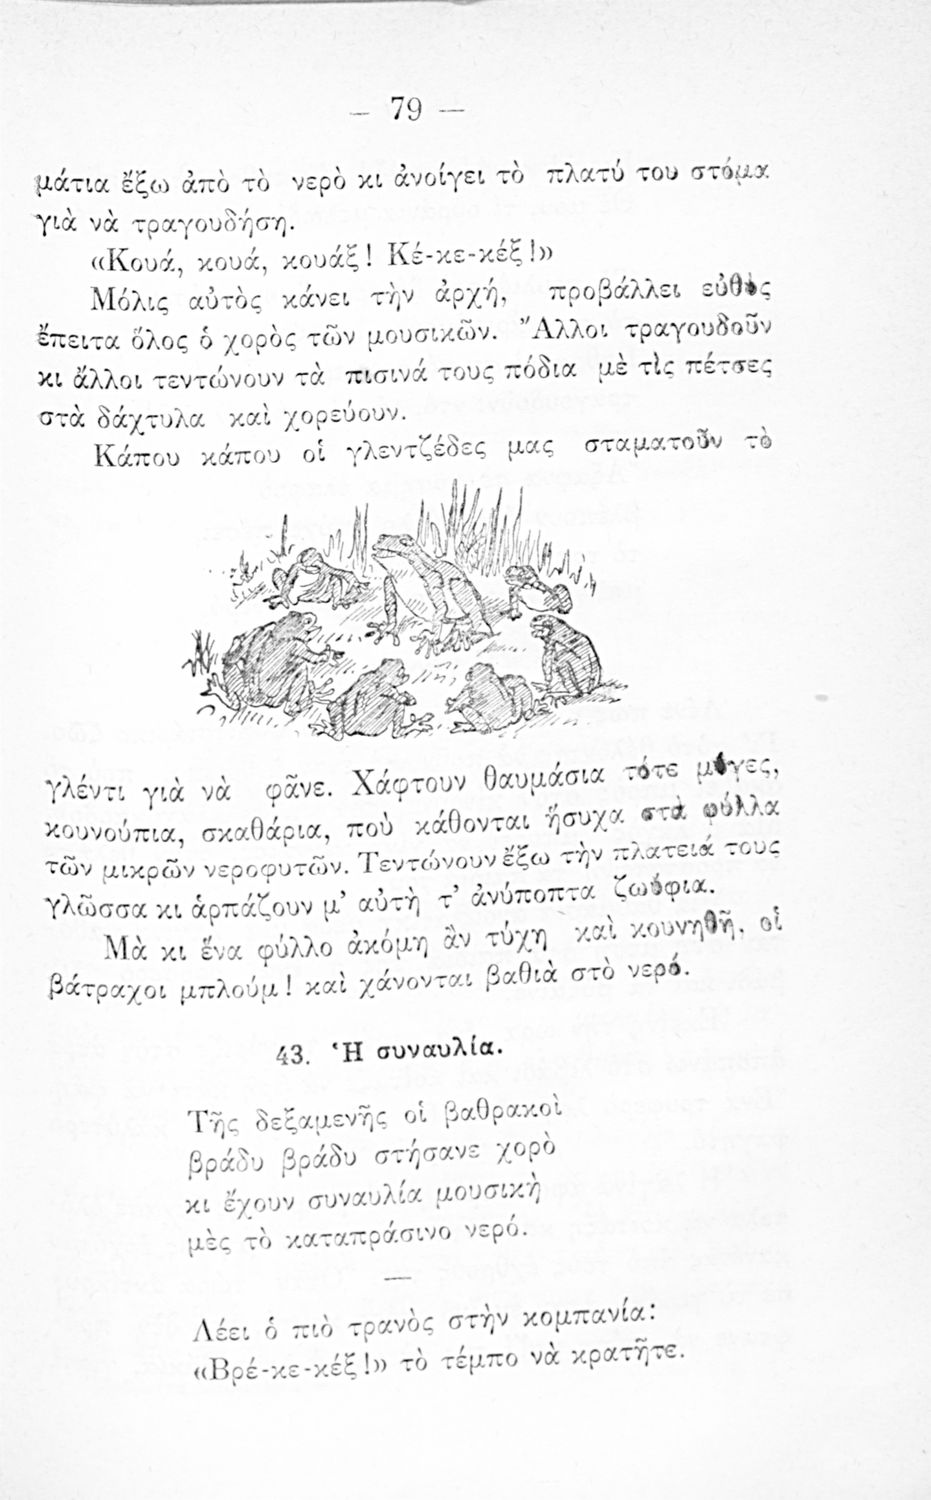 — 79 —
μάτια ἔξω ἀπὸ τὸ νερὸ κι ἀνοίγει τὸ πλατύ του στόμα
γιὰ νὰ τραγουδήση.
«Κουά, κουά, κουάξ! Κέ-κε-κέξ!»
Μόλις αὐτὸς κάνει τὴν ἀρχή, προβάλλει εὐθὺς
ἔπειτα ὅλος ὁ χορὸς τῶν μουσικῶν. Ἄλλοι τραγουδοῦν
κι ἄλλοι τεντώνουν τὰ πισινά τους πόδια μὲ τὶς πέτσες
στὰ δάχτυλα καὶ χορεύουν.
Κάπου κάπου οἱ γλεντζέδες μας σταματοῦν τὸ
γλέντι γιὰ νὰ φᾶνε. Χάφτουν θαυμάσια τότε μύγες,
κουνούπια, σκαθάρια, ποὺ κάθονται ἥσυχα στὰ φύλλα
τῶν μικρῶν νεροφυτῶν. Τεντώνουν ἔξω τὴν πλατειά τους
γλῶσσα κι ἁρπάζουν μ’ αὐτὴ τ’ ἀνύποπτα ζωύφια.
Μὰ κι ἕνα φύλλο ἀκόμη ἂν τύχη καὶ κουνηθῆ, οἱ
βάτραχοι μπλούμ! καὶ χάνονται βαθιὰ στὸ νερό.
43. Ἡ συναυλία.
Τῆς δεξαμενῆς οἱ βαθρακοὶ
βράδυ βράδυ στήσανε χορὸ
κι ἔχουν συναυλία μουσικὴ
μὲς τὸ καταπράσινο νερό.
—
Λέει ὁ πιὸ τρανὸς στὴν κομπανία:
«Βρέ-κε-κέξ!» τὸ τέμπο νὰ κρατῆτε.